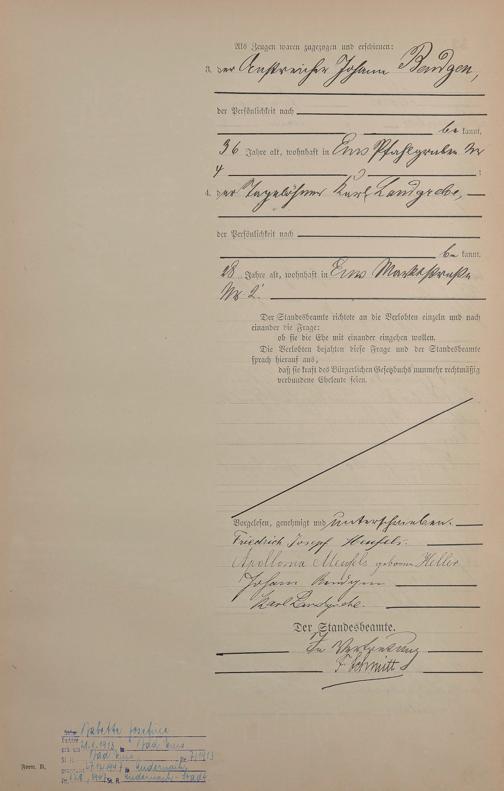 Als Zeugen waren zugezogen und erschienen:
3. der Anstreicher Johann Bendgen,
der Persönlichkeit nach
be kannt,
36 Jahre alt, wohnhaft in Ems Pfahlgraben Nr
4
4. der Tagelöhner Karl Landgrebe,
der Persönlichkeit nach
be kannt,
28 Jahre alt, wohnhaft in Ems Marktstraße
Nr 2.
Der Standesbeamte richtete an die Verlobten einzeln und nach
einander die Frage:
ob sie die Ehe mit einander eingehen wollen.
Die Verlobten bejahten diese Frage und der Standesbeamte
sprach hierauf aus,
daß sie kraft des Bürgerlichen Gesetzbuchs nunmehr rechtmäßig
verbundene Eheleute seien.
Vorgelesen, genehmigt und unterschrieben.
Friedrich Joseph
Apollonia geborene Heller
Johann Bendgen
Karl Landgrebe.
Der Standesbeamte.
In Vertretung
F Schmitt
Babette Josefine
1913 Bad Ems
Bad Ems 7/1913
Andernach
Andernach-Stadt
Form. B.